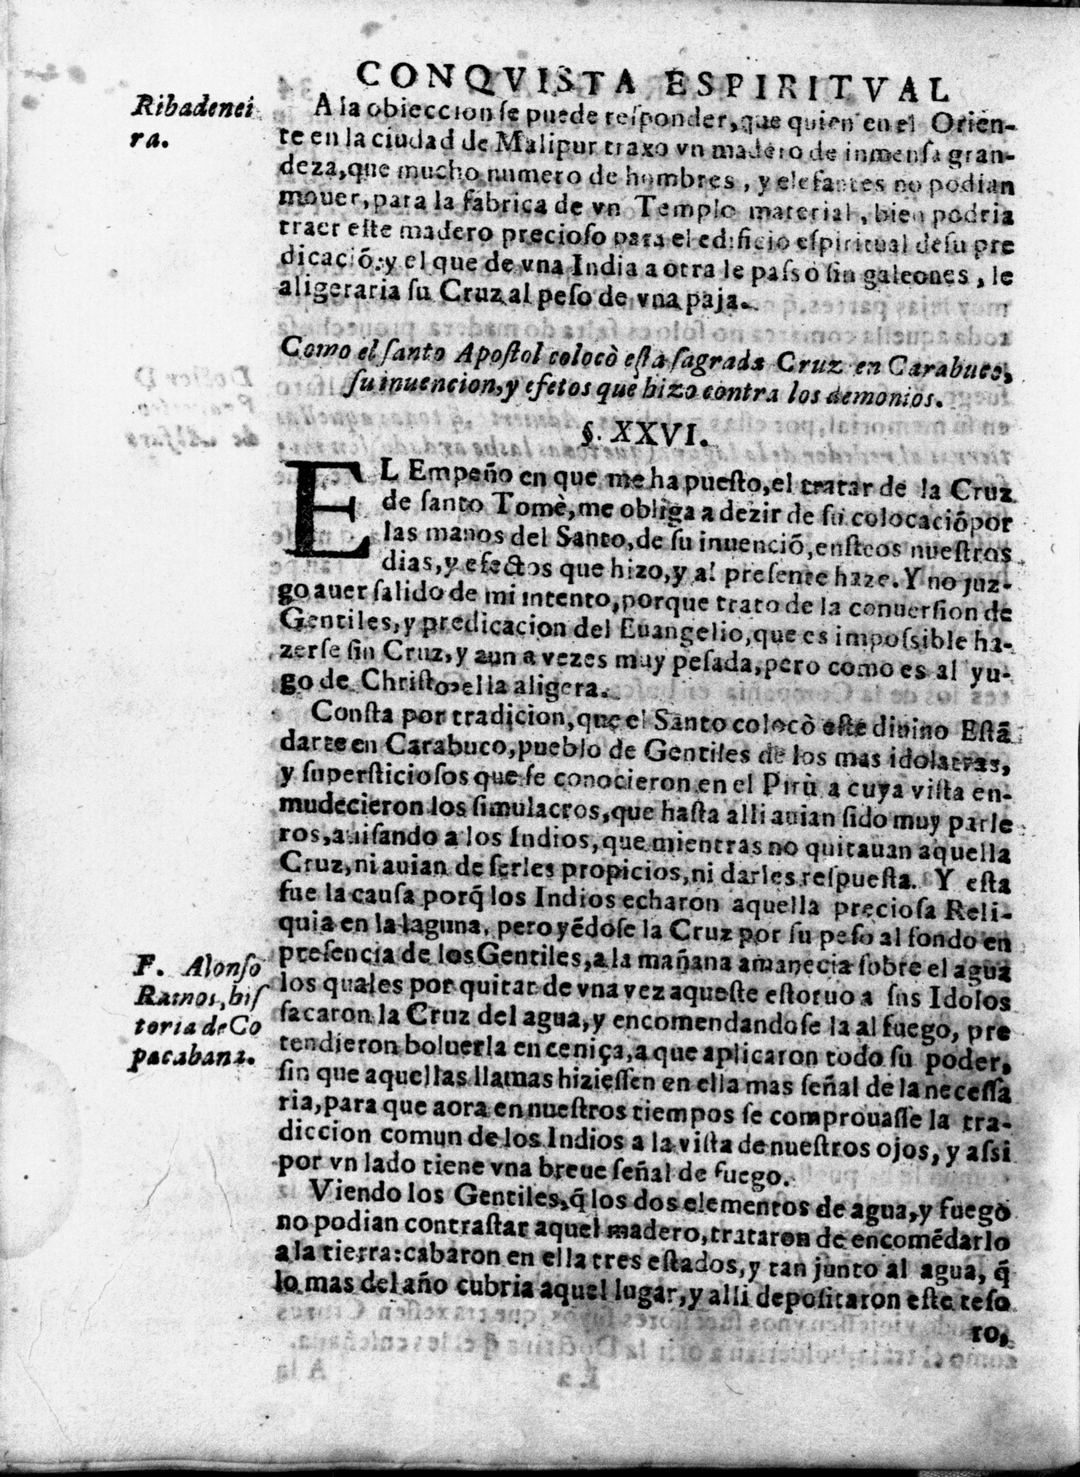 CONQVISTA ESPIRITVAL
Ribadenei
ra.
A la obieccion se puede responder, que quien en el Orien-
te en la ciudad de Malipur traxo vn madero de inmensa gran-
deza, que mucho numero de hombres, y elefantes no podian
mouer, para la fabrica de vn Templo material, bien podria
traer este madero precioso para el edificio espiritual de su pre
dicaciõ: y el que de vna India a otra le passò sin galeones, le
aligeraria su Cruz al peso de vna paja.
Como el santo Apostol colocò esta sagrada Cruz en Carabuco,
su inuencion, y efetos que hizo contra los demonios.
§. XXVI.
EL Empeño en que me ha puesto, el tratar de la Cruz
de santo Tomè, me obliga a dezir de su colocaciõ por
las manos del Santo, de su inuenciõ, en steos nuestros
dias, y efectos que hizo, y al presente haze. Y no juz-
go auer salido de mi intento, porque trato de la conuersion de
Gentiles, y predicacion del Euangelio, que es impossible ha-
zerse sin Cruz, y aun a vezes muy pesada, pero como es al yu-
go de Christo, ella aligera.
Consta por tradicion, que el Santo colocò este diuino Estã
darte en Carabuco, pueblo de Gentiles de los mas idolatras,
y supersticiosos que se conocieron en el Pirù a cuya vista en-
mudecieron los simulacros, que hasta alli auian sido muy parle
ros, auisando a los Indios, que mientras no quitauan aquella
Cruz, ni auian de serles propicios, ni darles respuesta. Y esta
fue la causa porq̃ los Indios echaron aquella preciosa Reli-
quia en la laguna, pero yẽdose la Cruz por su peso al fondo en
presencia de los Gentiles, a la mañana amanecia sobre el agua
F. Alonso
Ramos, his
toria de Co
pacabana.
los quales por quitar de vna vez aqueste estoruo a sus Idolos
sacaron la Cruz del agua, y encomendandose la al fuego, pre
tendieron boluerla en ceniça, a que aplicaron todo su poder,
sin que aquellas llamas hiziessen en ella mas señal de la necessa
ria, para que aora en nuestros tiempos se comprouasse la tra-
diccion comun de los Indios a la vista de nuestros ojos, y assi
por vn lado tiene vna breue señal de fuego.
Viendo los Gentiles, q̃ los dos elementos de agua, y fuego
no podian contrastar aquel madero, trataron de encomẽdarlo
a la tierra: cabaron en ella tres estados, y tan junto al agua, q̃
lo mas del año cubria aquel lugar, y alli depositaron este teso
ro,